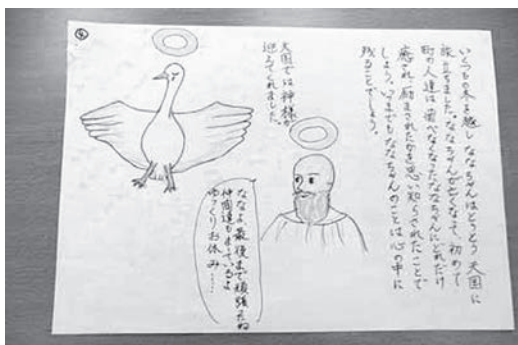 いくつもの冬を越し ななちゃんはとうとう 天国に
旅立ちました。ななちゃんが亡くなって、初めて
町の人達は 飛べなくなったななちゃんにどれだけ
癒され、励まされたかを思い知らされたことで
しょう。いつまでもななちゃんのことは心の中に
残ることでしょう。
天国では神様が
迎えてくれました。
ななよ 最後まで頑張ったね
仲間達もまっているよ
ゆっくりお休み……